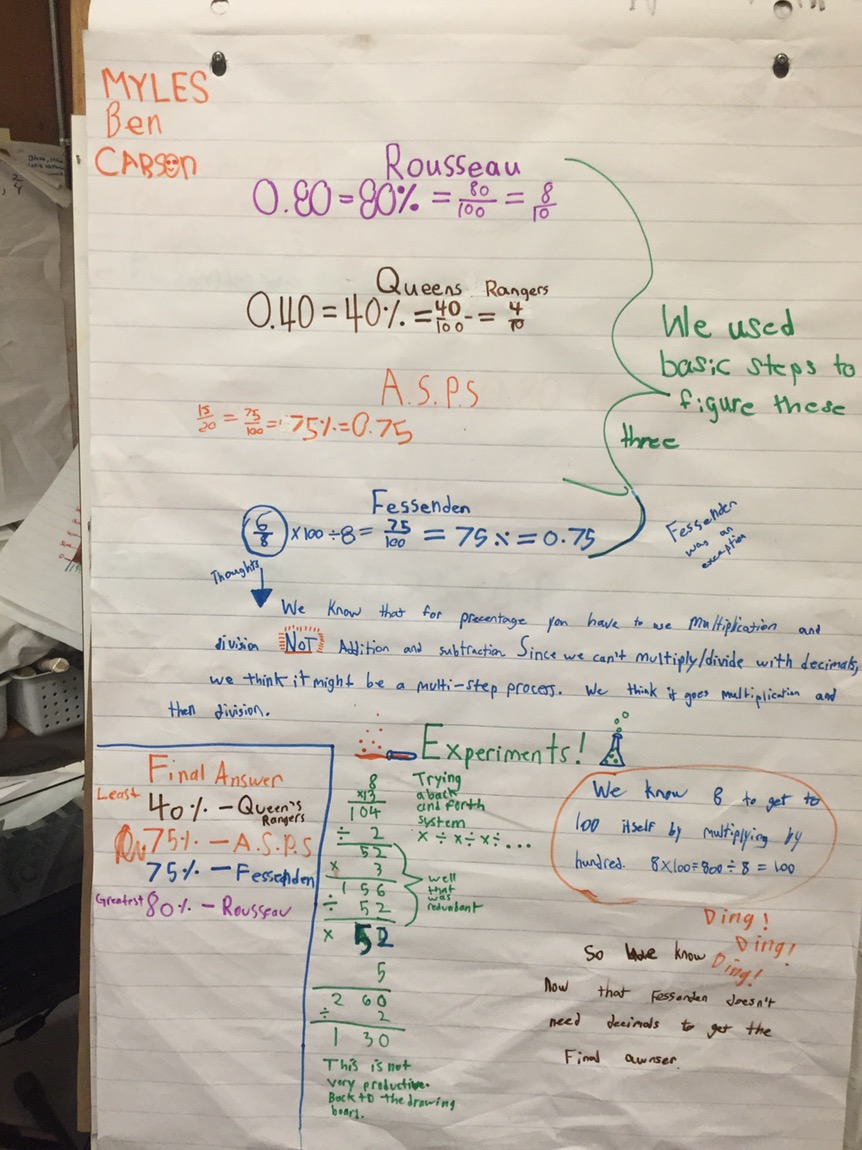 MYLES
Ben
CARSON
Rousseau
0.80 = 80% = 80/100 = 8/10
Queens Rangers
0.40 = 40% = 40/100 = 4/10
A.S.P.S
15/20 = 75/100 = 75% = 0.75
We used
basic steps to
figure these
three
Fessenden
6/8 × 100 ÷ 8 = 75/100 = 75% = 0.75
Fessenden
was an
exception
Thoughts
We know that for precentage you have to use multiplication and
division NOT Addition and subtraction. Since we can't multiply/divide with decimals,
we think it might be a multi-step process. We think it goes multiplication and
then division.
Experiments!
Final Answer
Least
40% - Queen's
Rangers
75% - A.S.P.S
75% - Fessenden
Greatest 80% - Rousseau
8
×13
104
÷ 2
52
× 3
156
÷ 52
× 52
5
260
÷ 2
130
Trying
a back
and forth
system
× ÷ × ÷ × ÷ ...
well
that
was
redundant
This is not
very productive.
Back to the drawing
board.
We know 8 to get to
100 itself by multiplying by
hundred. 8×100=800÷8=100
Ding!
Ding!
Ding!
So we know
now that Fessenden doesn't
need decimals to get the
Final awnser.